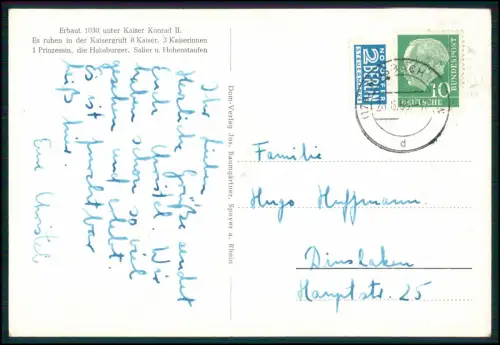 Erbaut 1030 unter Kaiser Konrad II.
Es ruhen in der Kaisergruft 8 Kaiser. 3 Kaiserinnen
1 Prinzessin, die Habsburger. Salier u. Hohenstaufen
Ihr Lieben
Herzliche Grüße sendet
Euch Christel. Wir
haben schon so viel
gesehen und erlebt.
Es ist furchtbar
heiß hier.
Eure Christel
Dom-Verlag Jos. Baumgärtner, Speyer a. Rhein
NOTOPFER
2 BERLIN
STEUERMARKE
10
DEUTSCHE
BUNDESPOST
d
Familie
Hugo Huffmann.
Dinslaken
Hauptstr. 25